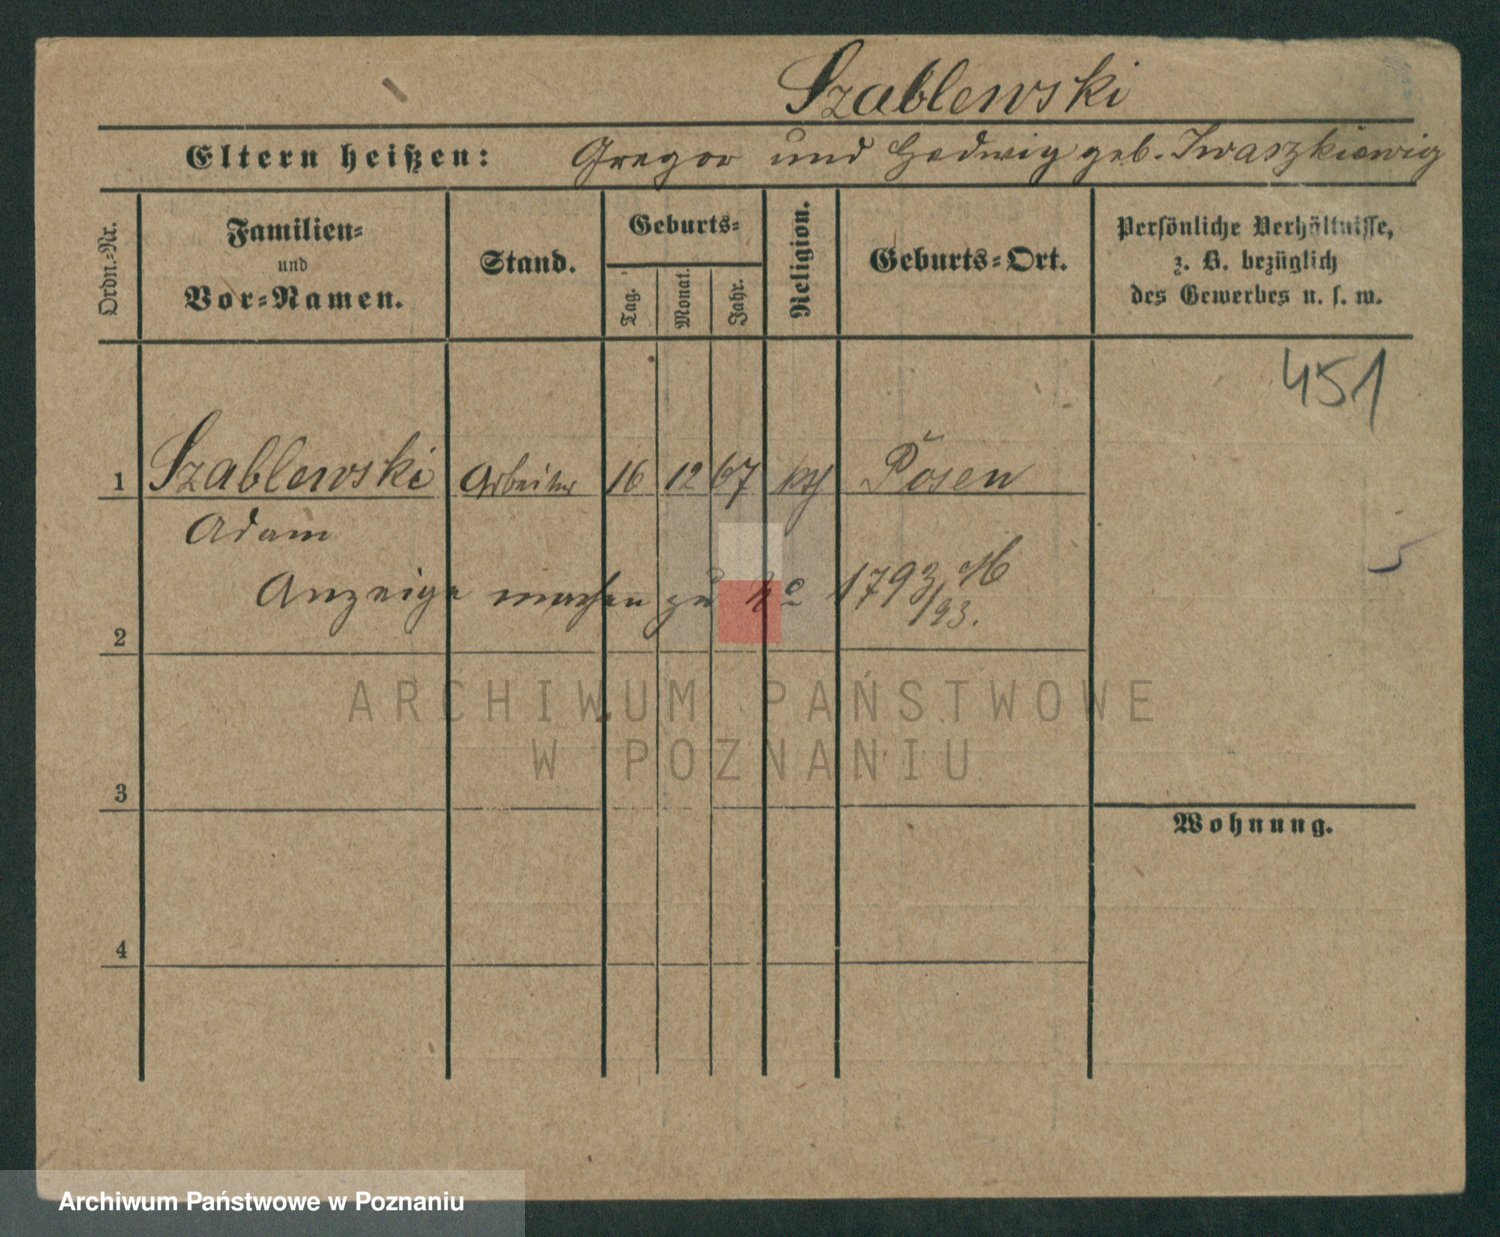 Szablewski
Eltern heißen: Gregor und Hedwig geb. Iwaszkiewig
Ordn.-Nr.
Familien-
und
Vor-Namen.
Stand.
Geburts-
Tag.
Monat.
Jahr.
Religion.
Geburts-Ort.
Persönliche Verhältnisse,
z. B. bezüglich
des Gewerbes u. s. w.
451
1 Szablewski Arbeiter 16 12 67 kth Posen
Adam
5
Anzeige machen zu 1793 M
/93.
2
ARCHIWUM PAŃSTWOWE
W POZNANIU
3
Wohnung.
4
Archiwum Państwowe w Poznaniu